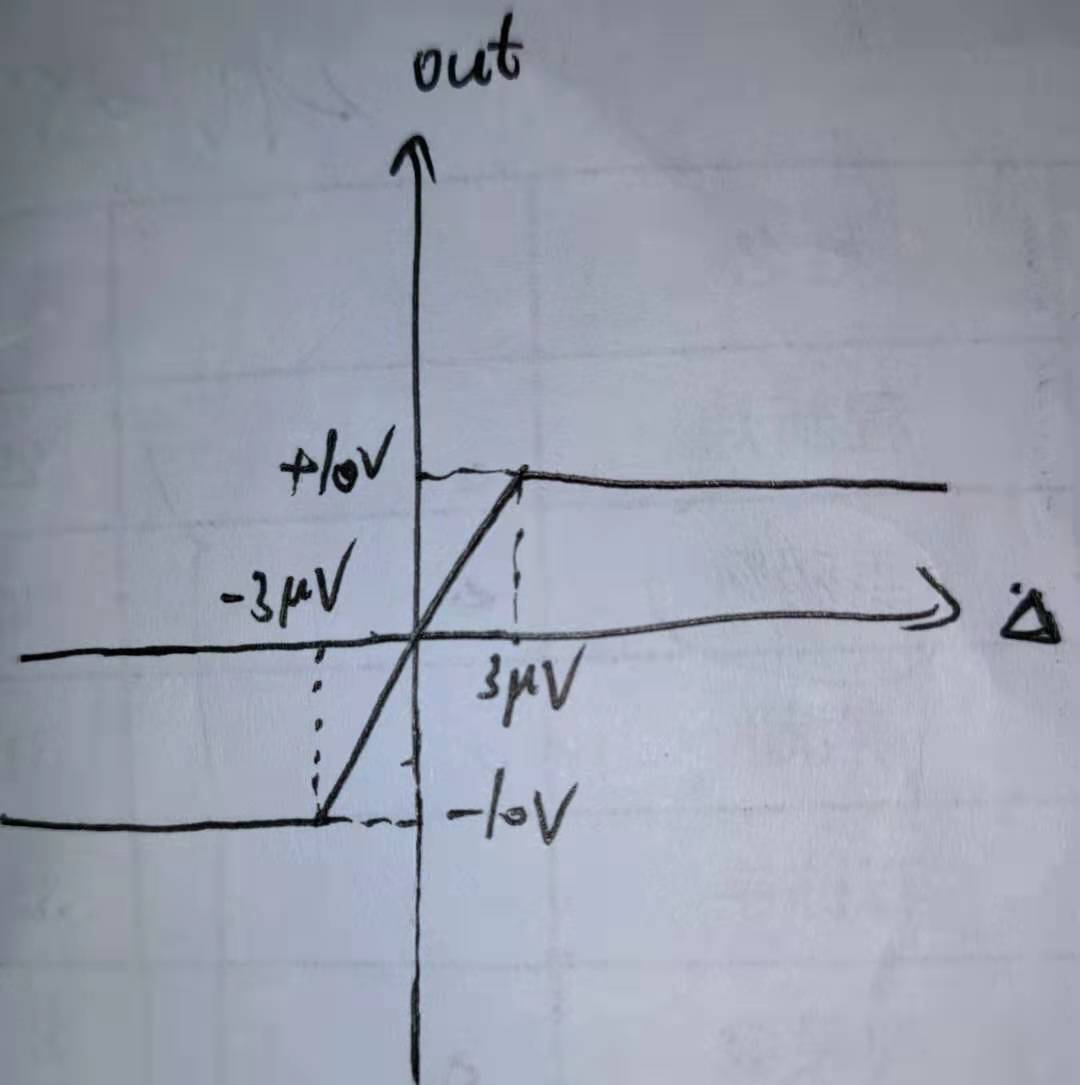 out
+10V
-3μV
3μV
-10V
Δ